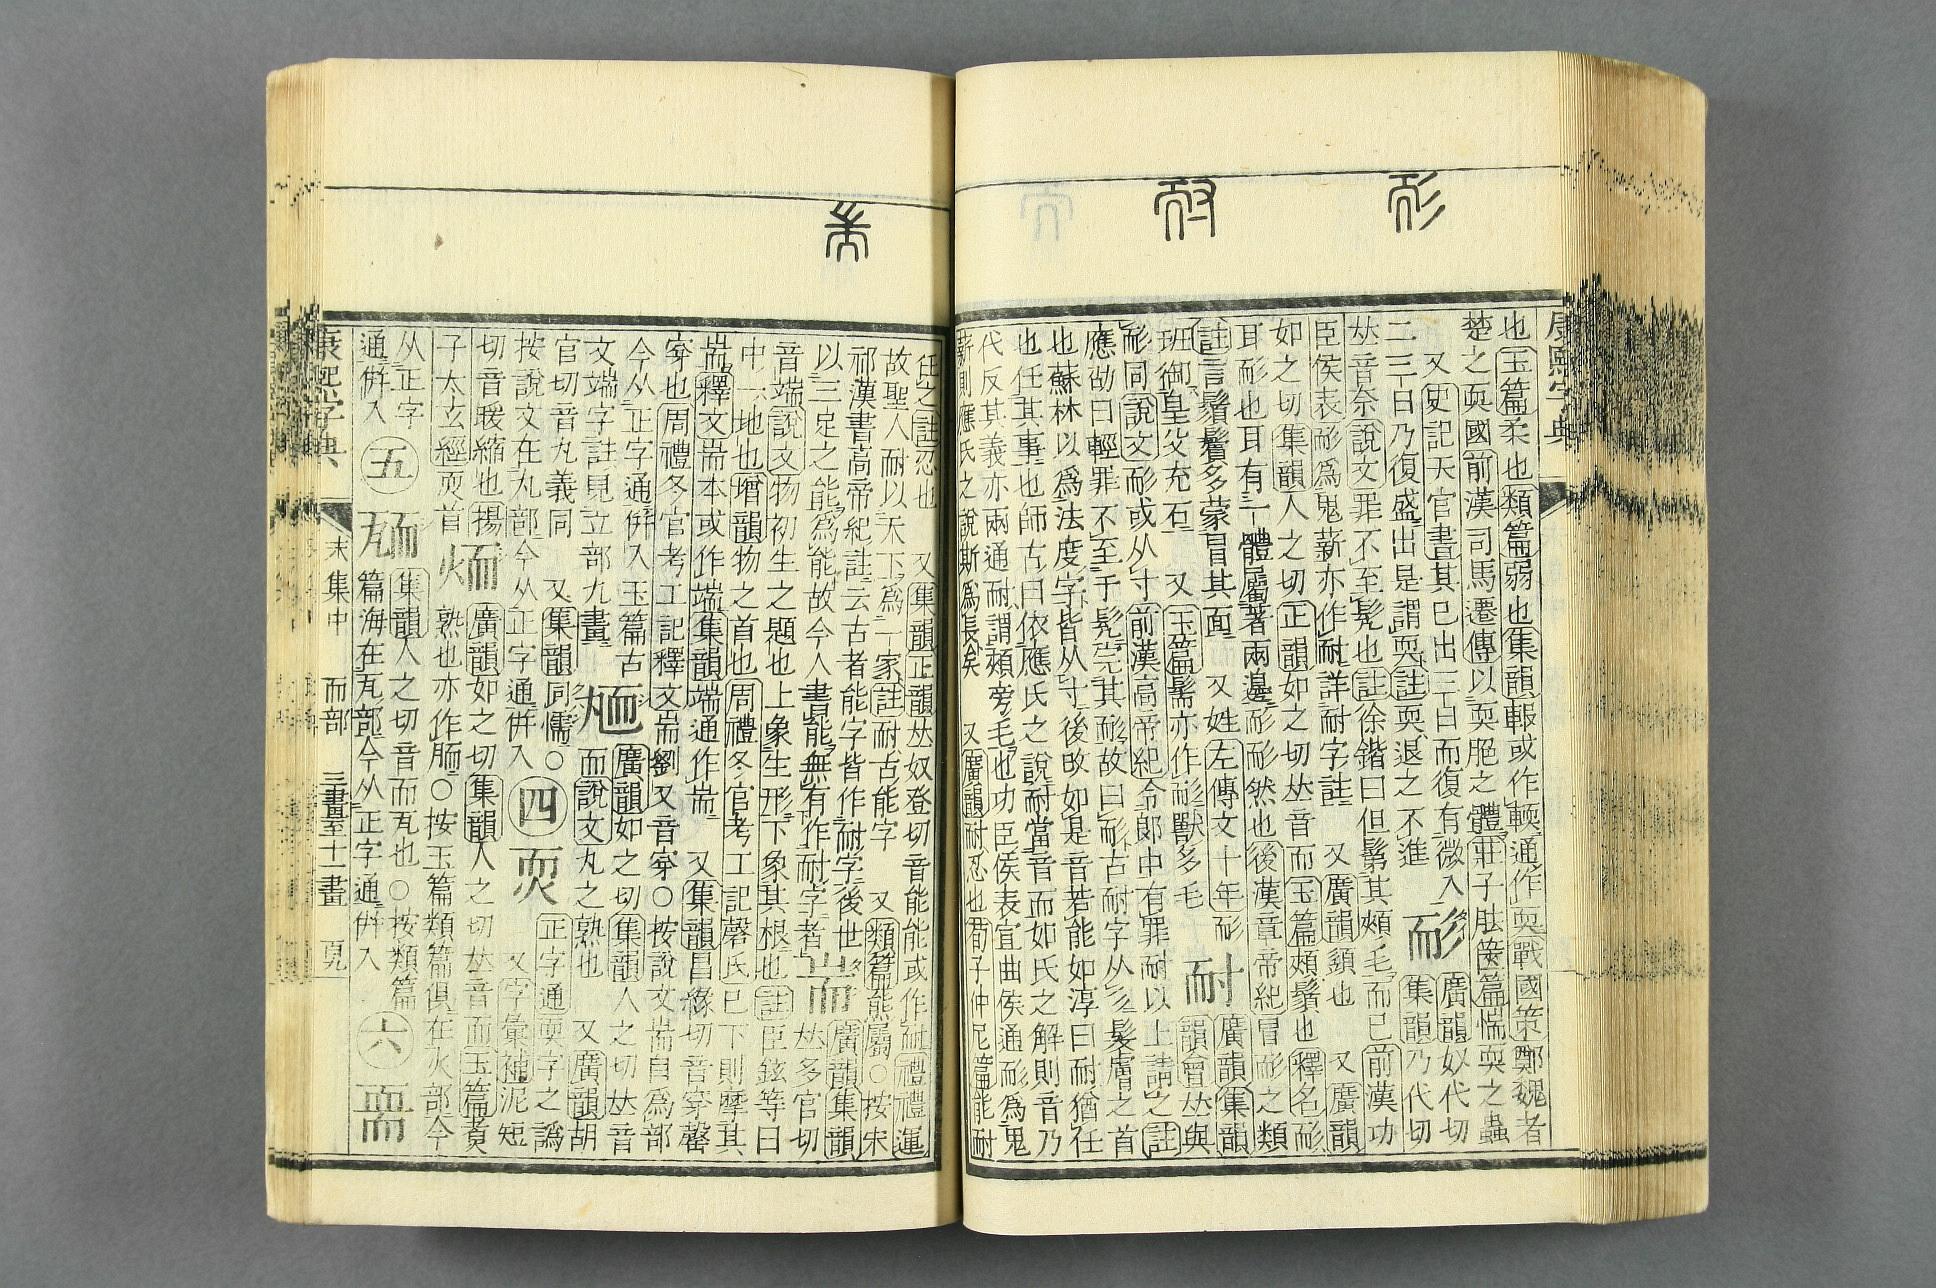 康熙字典
也玉篇柔也類篇弱也集韻報或作輭通作耎戰國策鄭魏者
楚之耎國前漢司馬遷傳以耎脃之體莊子胠篋篇惴耎之蟲
又史記天官書其已出三日而復有微入
二三日乃復盛出是謂耎註耎退之不進
耏
廣韻奴代切
集韻乃代切
𠀤音奈說文罪不至髡也註徐鍇曰但鬀其頰毛而已前漢功
臣侯表耏爲鬼薪亦作耐詳耐字註 又廣韻頿也 又廣韻
如之切集韻人之切正韻如之切𠀤音而玉篇頰鬚也釋名耏
耳耏也耳有一體屬著兩邊耏耏然也後漢章帝紀冒耏之類
註言鬚鬢多蒙冒其面 又姓左傳文十年耏
班御皇父充石 又玉篇髵亦作耏獸多毛
耐
廣韻集韻
韻會𠀤與
耏同說文耏或从寸前漢高帝紀令郞中有罪耐以上請之註
應劭曰輕罪不至于髡完其耏故曰耏古耐字从彡髮膚之首
也蘇林以爲法度字皆从寸後改如是音若能如淳曰耐猶任
也任其事也師古曰依應氏之說耐當音而如氏之解則音乃
代反其義亦兩通耐謂頰旁毛也功臣侯表宣曲侯通耏爲鬼
薪則應氏之說斯爲長矣 又廣韻耐忍也荀子仲尼篇能耐
任之註忍也 又集韻正韻𠀤奴登切音能能或作耐禮禮運
故聖人耐以天下爲一家註耐古能字 又類篇熊屬○按宋
祁漢書高帝紀註云古者能字皆作耐字後世
以三足之能爲能故今人書能無有作耐字者
耑
廣韻集韻
𠀤多官切
音端說文物初生之題也上象生形下象其根也註臣鉉等曰
中一地也增韻物之首也周禮冬官考工記磬氏已下則摩其
耑釋文耑本或作端集韻端通作耑 又集韻昌緣切音穿罄
穿也周禮冬官考工記釋文耑劉又音穿○按說文耑自爲部
今从正字通倂入玉篇古
文端字註見立部九畫
廣韻如之切集韻人之切𠀤音
而說文丸之熟也 又廣韻胡
官切音丸義同 又集韻同濡○
按說文在丸部今从正字通倂入
四
耎
正字通耎字之譌
又字彙補泥短
切音暖縮也揚
子太玄經耎首
廣韻如之切集韻人之切𠀤音而玉篇煑
熟也亦作胹○按玉篇類篇俱在火部今
从正字
通倂入
五
集韻人之切音而瓦也○按類篇
篇海在瓦部今从正字通倂入
六
康熙字典
未集中
而部
三畫至十一畫